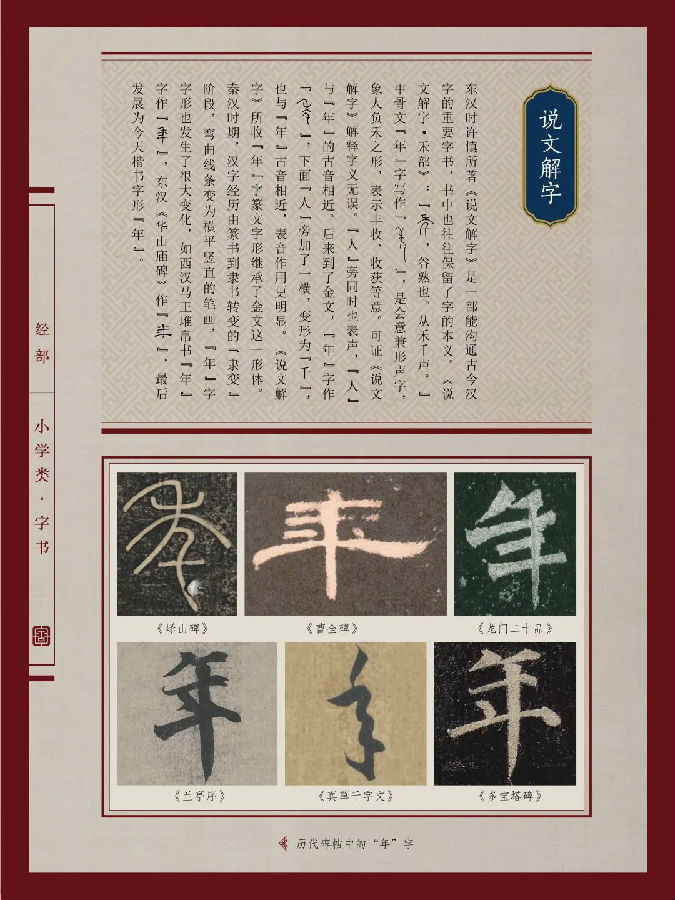 说文解字
东汉时许慎所著《说文解字》是一部能沟通古今汉
字的重要字书，书中也往往保留了字的本义。《说
文解字·禾部》：“秊，谷熟也。从禾千声。”
甲骨文“年”字写作“ ”，是会意兼形声字，
象人负禾之形，表示丰收、收获等意。可证《说文
解字》解释字义无误。“人”旁同时也表声，“人”
与“年”的古音相近。后来到了金文，“年”字作
“ ”，下面“人”旁加了一横，变形为“千”，
也与“年”古音相近，表音作用更明显。《说文解
字》所收“年”字篆文字形继承了金文这一形体。
秦汉时期，汉字经历由篆书到隶书转变的“隶变”
阶段，弯曲线条变为横平竖直的笔画，“年”字
字形也发生了很大变化，如西汉马王堆帛书“年”
字作“ ”，东汉《华山庙碑》作“ ”，最后
发展为今天楷书字形“年”。
经部
小学类·字书
年
年
年
《峄山碑》
《曹全碑》
《龙门二十品》
年
年
年
《兰亭序》
《真草千字文》
《多宝塔碑》
历代碑帖中的“年”字